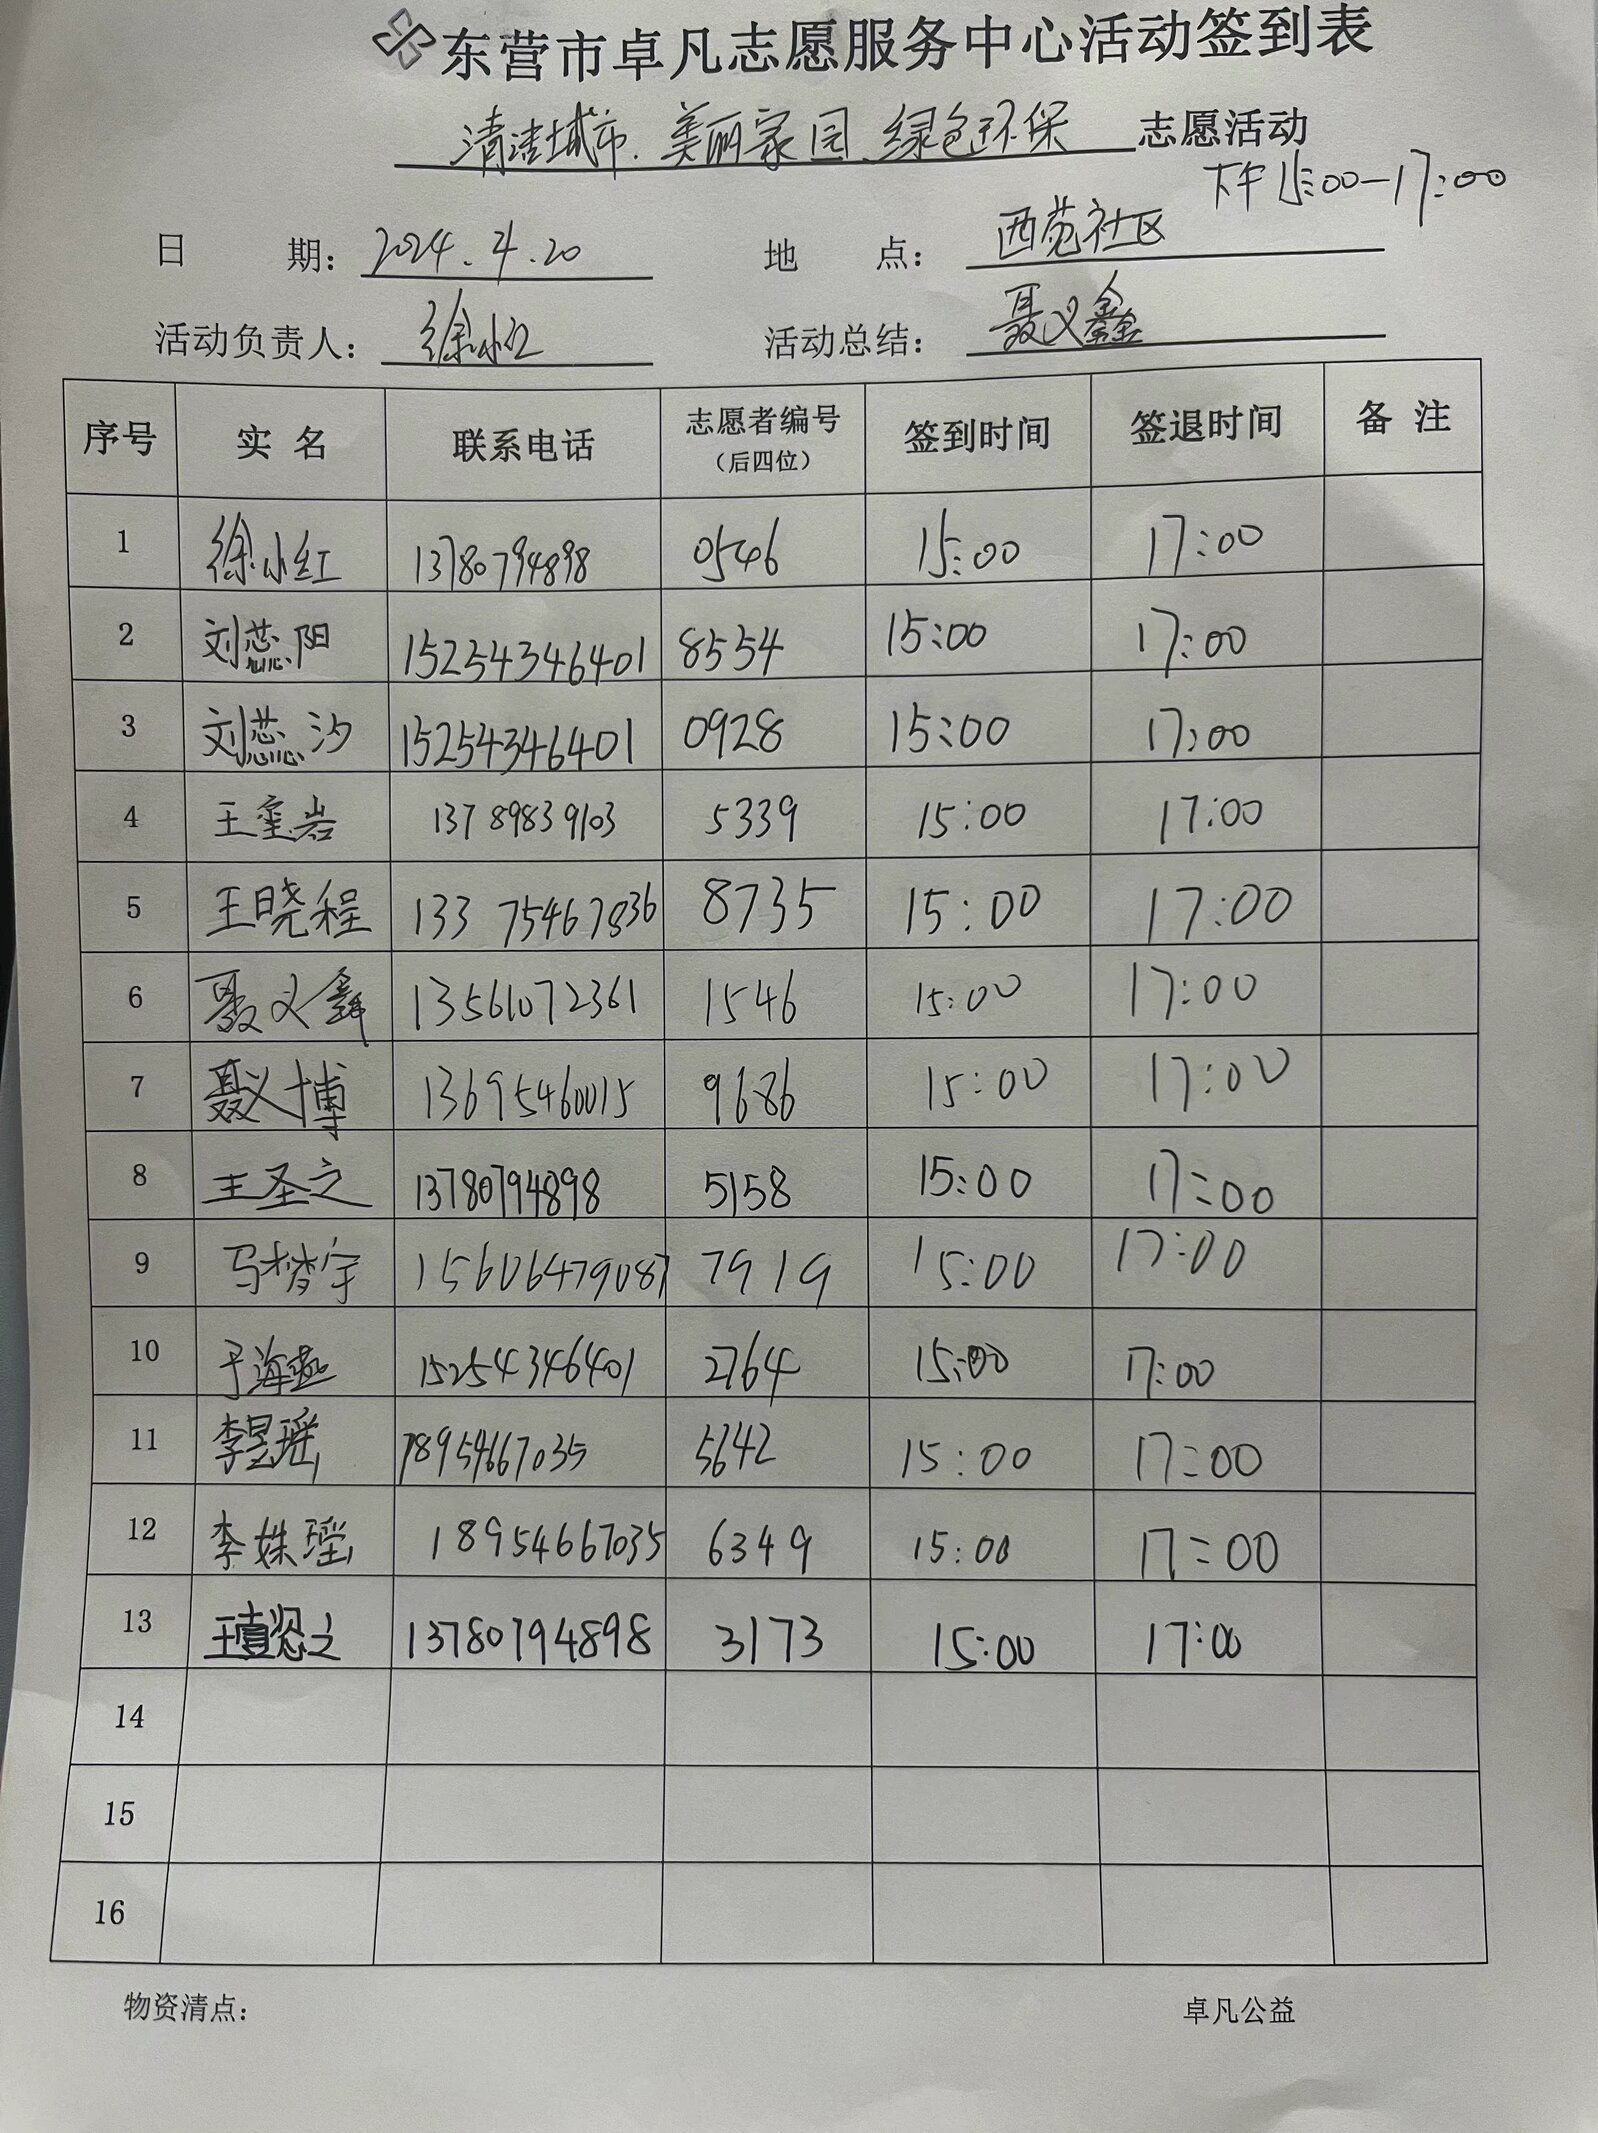 东营市卓凡志愿服务中心活动签到表
清洁城市、美丽家园、绿色环保 志愿活动
下午15:00-17:00
日 期: 2024.4.20 地 点: 西苑社区
活动负责人: 徐小红 活动总结: 聂义鑫
序号 实名 联系电话 志愿者编号（后四位） 签到时间 签退时间 备注
1 徐小红 13780794898 0546 15:00 17:00
2 刘蕊阳 15254346401 8554 15:00 17:00
3 刘蕊汐 15254346401 0928 15:00 17:00
4 王玺岩 13789839103 5339 15:00 17:00
5 王晓程 13375467836 8735 15:00 17:00
6 聂义鑫 13561072361 1546 15:00 17:00
7 聂义博 13695460015 9686 15:00 17:00
8 王圣之 13780794898 5158 15:00 17:00
9 马梦宇 15606479087 7919 15:00 17:00
10 于海燕 15254346401 2764 15:00 17:00
11 李昱瑶 18954667035 5642 15:00 17:00
12 李姝瑶 18954667035 6349 15:00 17:00
13 13780794898 3173 15:00 17:00
14
15
16
物资清点: 卓凡公益